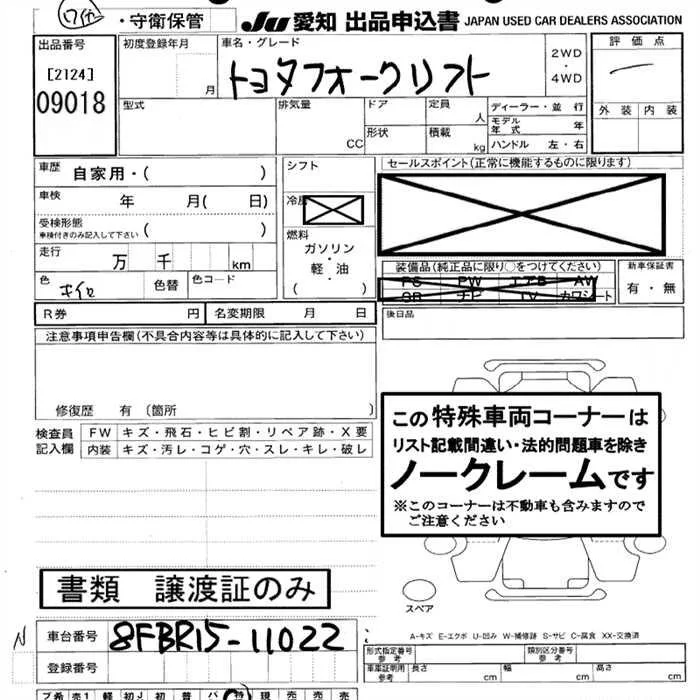 ・守衛保管 JU 愛知 出品申込書 JAPAN USED CAR DEALERS ASSOCIATION
出品番号
[2124]
09018
初度登録年月
月
車名・グレード
トヨタフォークリフト
2WD
・
4WD
評価点
外装 内装
型式
排気量
CC
ドア
形状
定員
人
積載
kg
ディーラー・並 行
モデル年式 年
ハンドル 左・右
車歴
自家用・( )
車検
年 月( 日)
受検形態
車検付きのみ記入して下さい ( )
走行
万 千 km
色
キイロ
色替
色コード
シフト
冷房
燃料
ガソリン
・
軽・油
( )
セールスポイント(正常に機能するものに限ります)
装備品(純正品に限り○をつけてください)
PS PW エアB AW
SR ナビ TV カワシート
新車保証書
有・無
後日品
R券 円 名変期限 月 日
注意事項申告欄(不具合内容等は具体的に記入して下さい)
修復歴 有 〔箇所 〕
検査員
記入欄
FW キズ・飛石・ヒビ割・リペア跡・X要
内装 キズ・汚レ・コゲ・穴・スレ・キレ・破レ
この特殊車両コーナーは
リスト記載間違い・法的問題車を除き
ノークレームです
※このコーナーは不動車も含みますので
ご注意ください
スペア
書類 譲渡証のみ
N
車台番号 8FBR15-11022
登録番号
A-キズ E-エクボ U-凹み W-補修跡 S-サビ C-腐食 XX-交換済
形式指定番号
参考
類別区分番号
参考
車庫証明用
参考
長さ cm 幅 cm 高さ cm